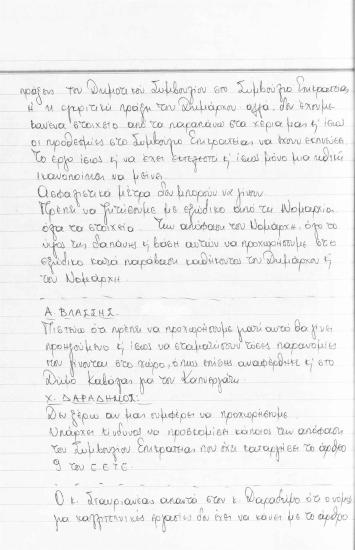 πράξης του Δημοτικού Συμβουλίου στο Συμβούλιο Επικρατείας
ή η εγκριτική πράξη του Δημάρχου αλλά δεν έχουμε
κανένα στοιχείο από τα παραπάνω στα χέρια μας κ' ίσως
οι προθεσμίες στο Συμβούλιο Επικρατείας να έχουν εκπνεύσει
Το έργο ίσως κ' να έχει εκτελεστεί κ' ίσως μόνο μια ηθική
ικανοποίηση να μείνει.
Ασφαλιστικά μέτρα δεν μπορούν να γίνουν.
Πρέπει να ζητήσουμε με εξώδικο από τη Νομαρχία
όλα τα στοιχεία. Την απόφαση του Νομάρχη, όλο το
ύψος της δαπάνης κ' βάση αυτών να προχωρήσουμε στο
εξώδικο κατά παράβαση καθήκοντος του Δημάρχου κ'
του Νομάρχη.
Α. ΒΛΑΣΣΗΣ.
Πιστεύω ότι πρέπει να προχωρήσουμε γιατί αυτό θα γίνει
προηγούμενο κ' ίσως να σταματήσουν τόσες παρανομίες
που γίνονται στο χώρο, όπως επίσης αναφέρθηκε κ' στο
Δήμο Καβάλας για τον
Χ. ΔΑΡΑΔΗΜΟΣ:
Δεν ξέρω αν μας συμφέρει να προχωρήσουμε.
Υπάρχει κίνδυνος να προσκομίσει κάποιος την απόφαση
του Συμβουλίου Επικρατείας που έχει καταργήσει το άρθρο
9 του
Ο κ. Σταυριανέας απαντά στον κ. Δαράδημο ότι ο νόμος
για καλλιτεχνικές εργασίες δεν έχει να κάνει με το άρθρο